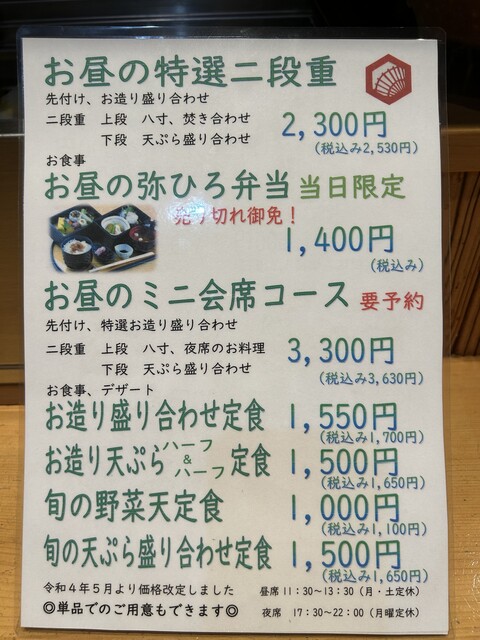 お昼の特選二段重
先付け、お造り盛り合わせ
二段重　上段　八寸、焚き合わせ
下段　天ぷら盛り合わせ
2,300円
(税込み2,530円)
お食事
お昼の弥ひろ弁当 当日限定
売り切れ御免！
1,400円
(税込み)
お昼のミニ会席コース 要予約
先付け、特選お造り盛り合わせ
二段重　上段　八寸、夜席のお料理
下段　天ぷら盛り合わせ
3,300円
(税込み3,630円)
お食事、デザート
お造り盛り合わせ定食 1,550円
(税込み1,700円)
お造り天ぷらハーフ&ハーフ定食 1,500円
(税込み1,650円)
旬の野菜天定食 1,000円
(税込み1,100円)
旬の天ぷら盛り合わせ定食 1,500円
(税込み1,650円)
令和4年5月より価格改定しました
昼席 11：30～13：30（月・土定休）
◎単品でのご用意もできます◎
夜席 17：30～22：00（月曜定休）